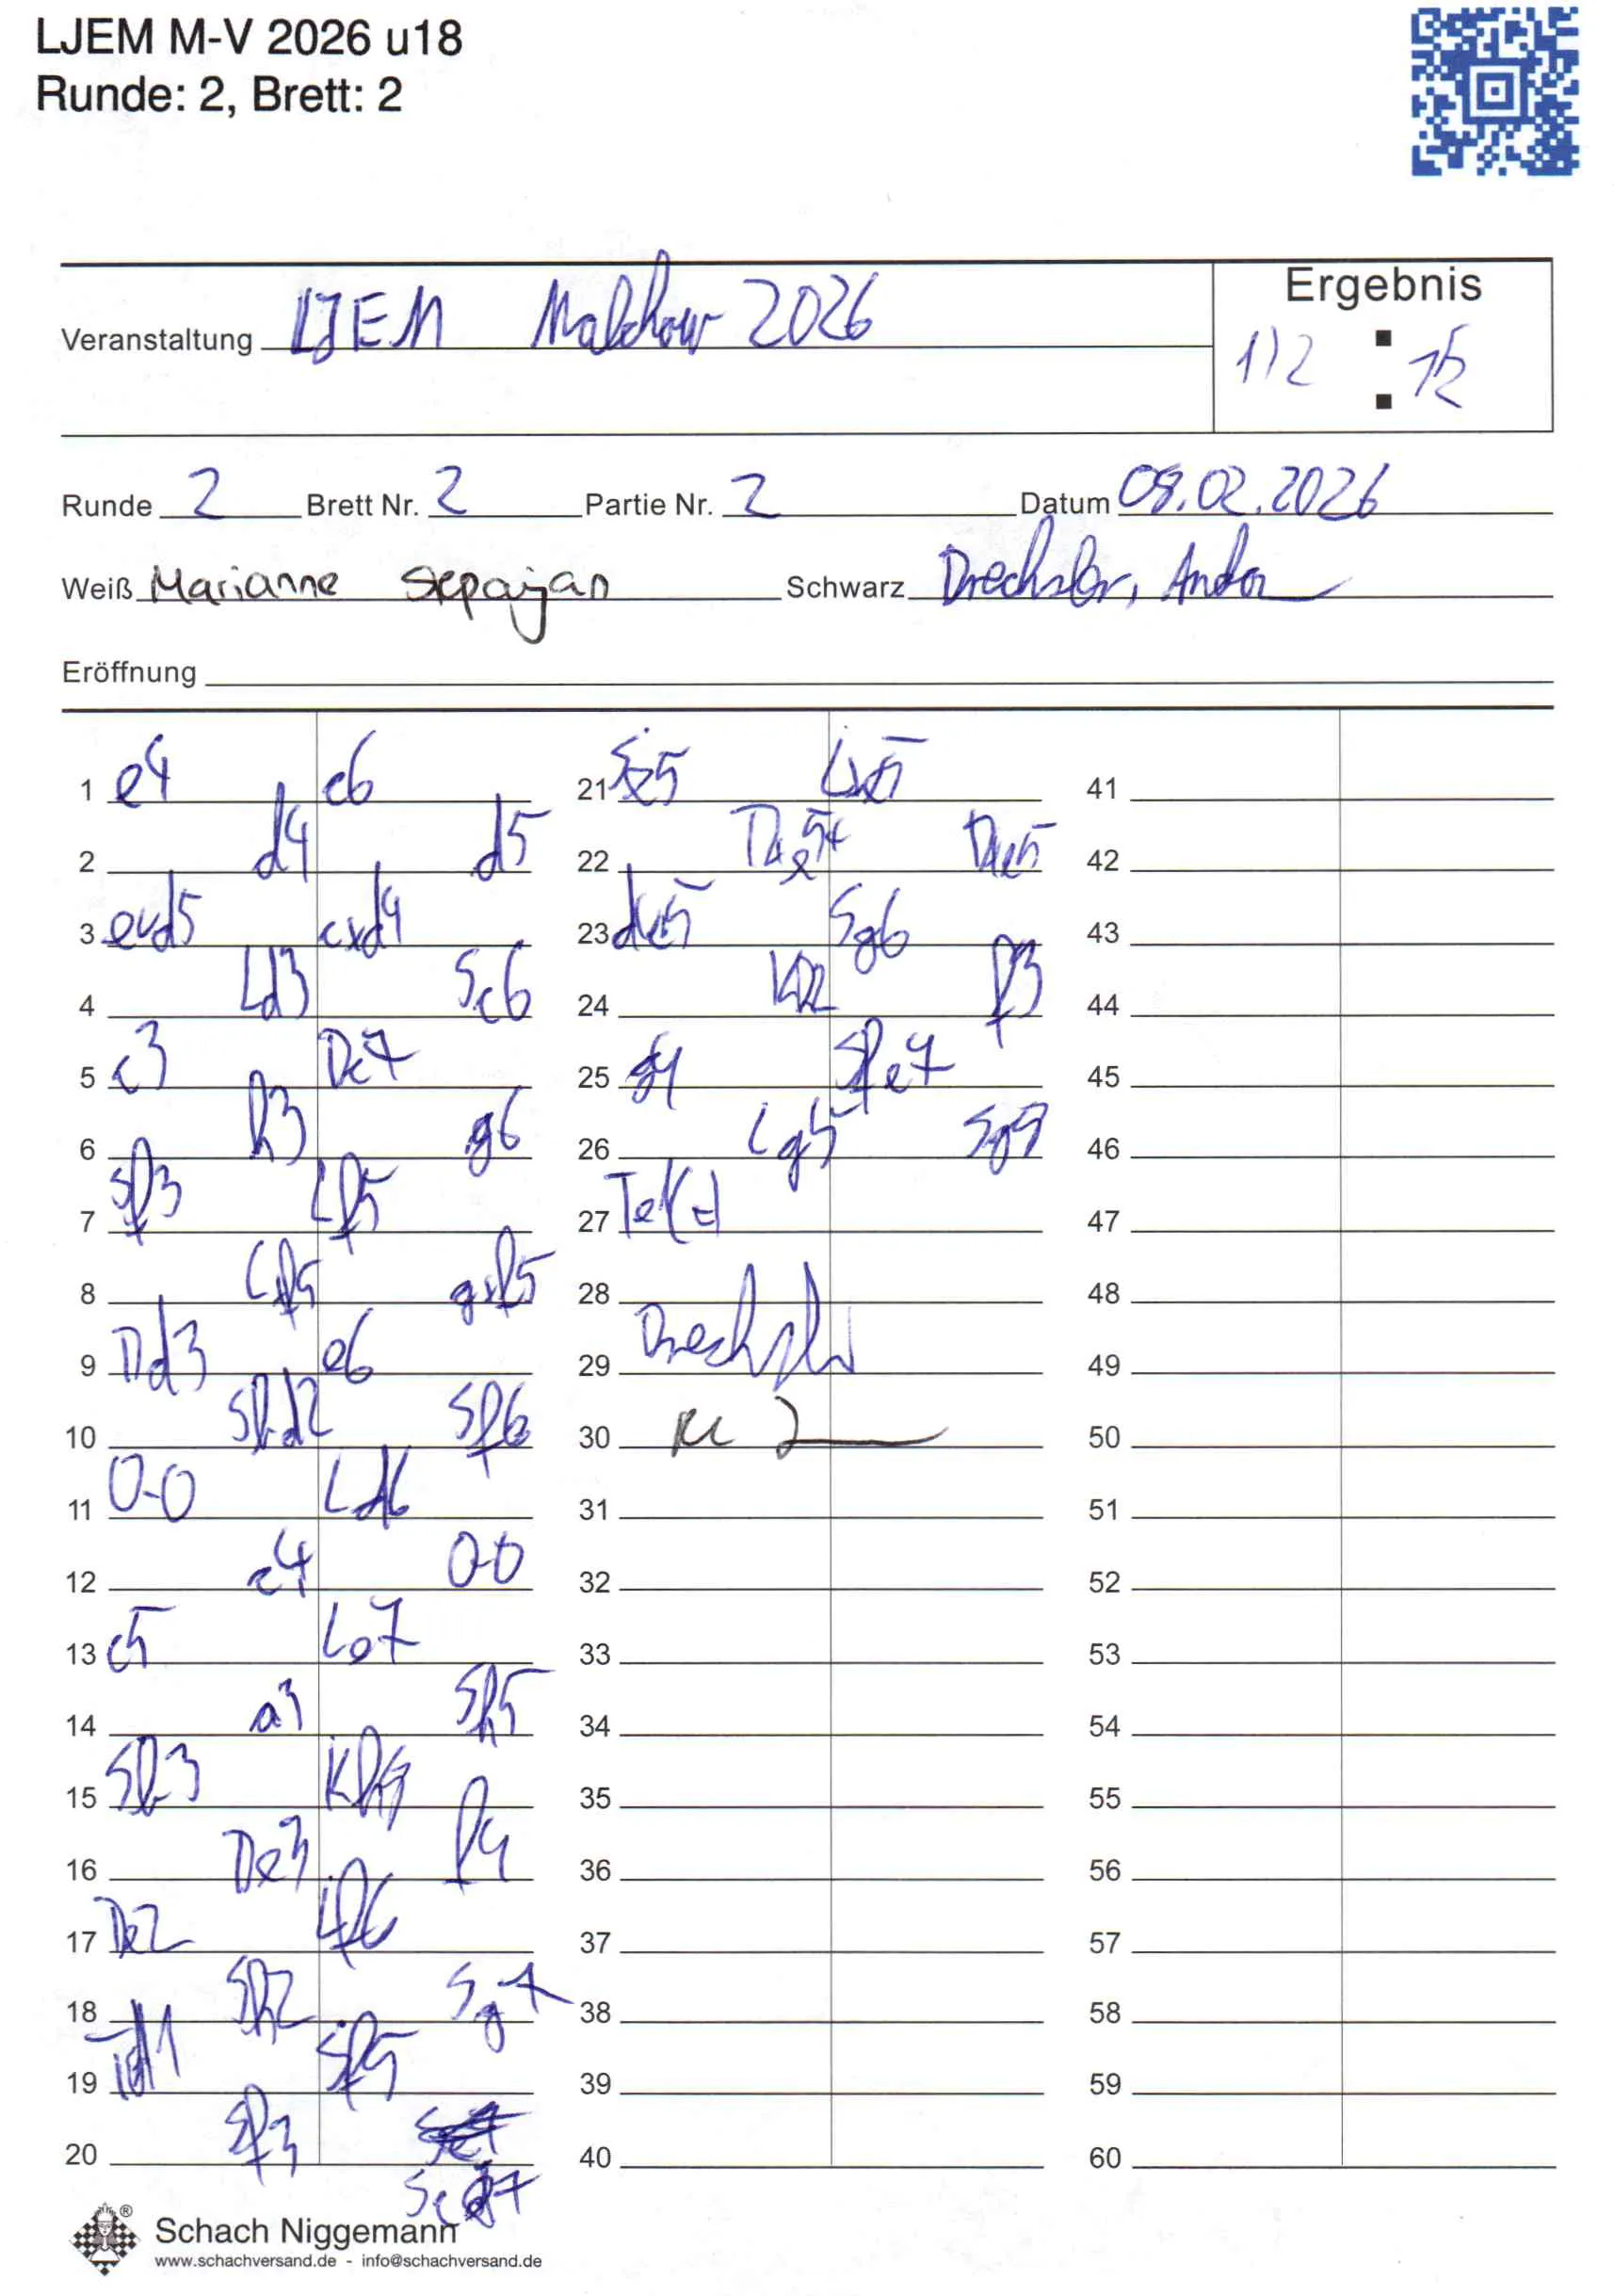 LJEM M-V 2026 u18
Runde: 2, Brett: 2
Veranstaltung LJEM Malchow 2026
Ergebnis
1/2 : 1/2
Runde 2 Brett Nr. 2 Partie Nr. 2 Datum 08.02.2026
Weiß Marianne Stepanjan Schwarz Drechsler, Andor
Eröffnung
1 e4 c6 21 Se5 Lxe5 41
2 d4 d5 22 Dxe5+ Dxe5 42
3 exd5 cxd4 23 dxe5 Sg6 43
4 Ld3 Sc6 24 Kh2 f3 44
5 c3 Dc7 25 g4 Sfe7 45
6 h3 g6 26 Lg5 Sg8 46
7 Sf3 Lf5 27 Te1(=) 47
8 Lxf5 gxf5 28 48
9 Dd3 e6 29 Drechsler 49
10 Sbd2 Sf6 30 50
11 0-0 Ld6 31 51
12 c4 0-0 32 52
13 c5 Le7 33 53
14 a3 Sh5 34 54
15 Sb3 Kh8 35 55
16 De3 f4 36 56
17 De2 Lf6 37 57
18 Sh2 Sg7 38 58
19 Td1 Sf5 39 59
20 Sf3 40 60
Sce7
Schach Niggemann ®
www.schachversand.de - info@schachversand.de